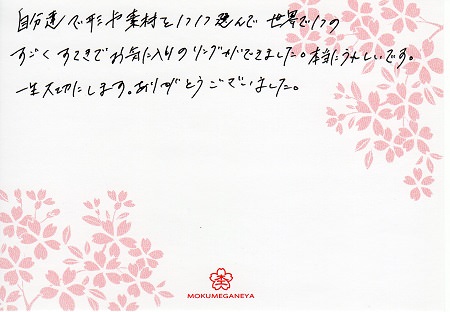 自分達で形や素材を1つ1つ選んで世界で1つの
すごくすてきでお気に入りのリングができました。本当にうれしいです。
一生大切にします。ありがとうございました。
MOKUMEGANEYA